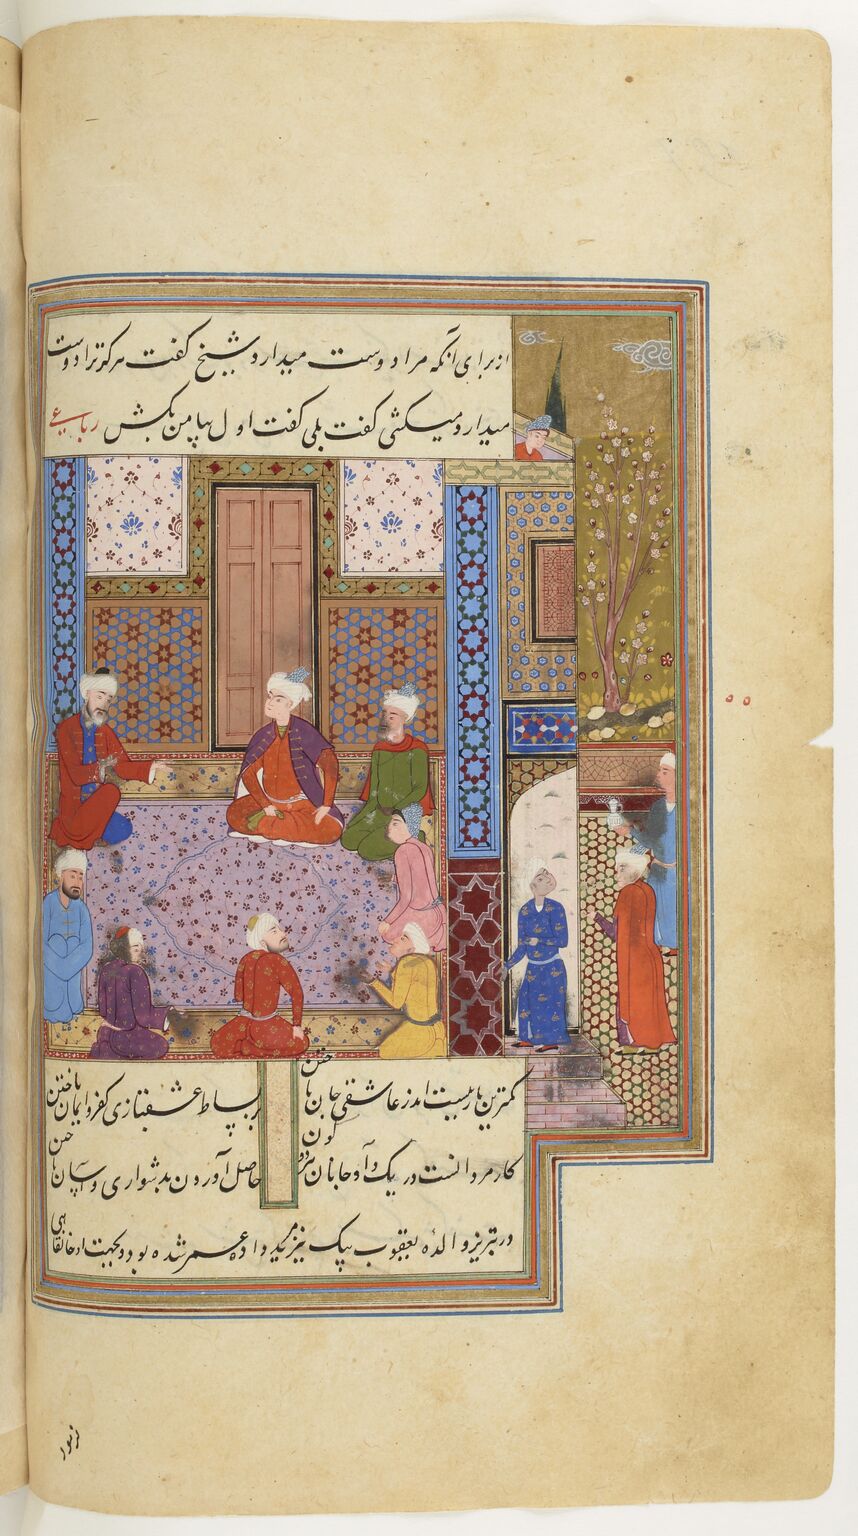 از برای آنکه مرا دوست میدارد شیخ گفت هرکه ترا دوست
میدارد میکشی گفت بلی گفت اول بیا من بکش رباعی
کمترین بازیست اندر عاشقی جان باختن بر بساط عشقبازی کفر و ایمان باختن
کار مردانست در یک دو جانان حاصل آوردن بدشواری و آسان باختن
در تبریز والده یعقوب بیک نیز مرید داده عمر شده بود و بجهت او خانقاهی